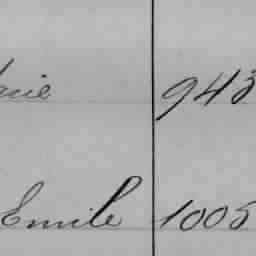 943
Emile 1005